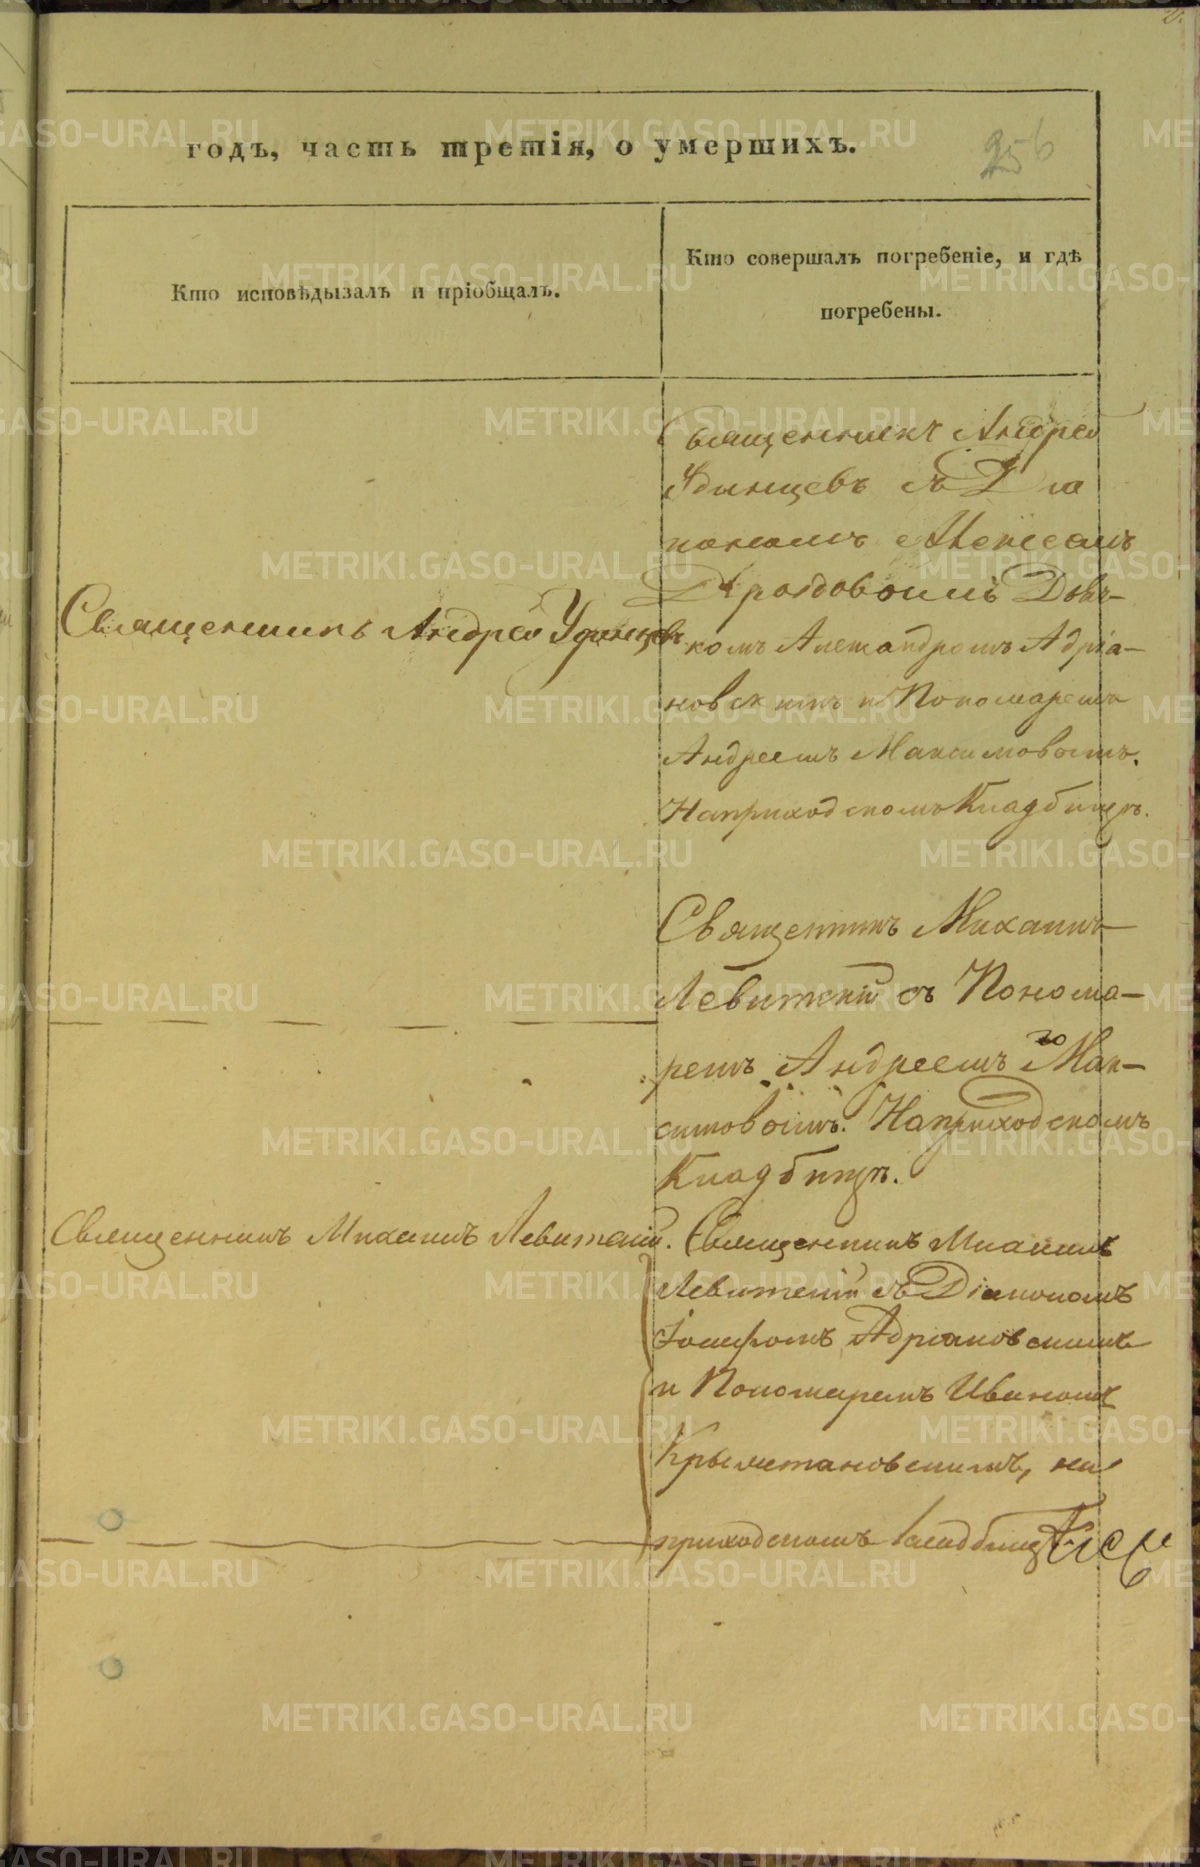 годъ, часть третія, о умершихъ.
256
Кто исповѣдывалъ и пріобщалъ.
Кто совершалъ погребеніе, и гдѣ
погребены.
Священникъ Андрей
Удинцевъ съ Діа
кономъ Алексеемъ
Дроздовымъ Дьяч-
комъ Александромъ Адріа-
новскимъ и Пономаремъ
Андреемъ Максимовымъ.
На приходскомъ Кладбищѣ.
Священникъ Андрей Удинцевъ
Священникъ Михаилъ
Левитскій съ Понома-
ремъ Андреемъ Мак-
симовымъ. На приходскомъ
Кладбищѣ.
Священникъ Михаилъ Левитскій.
Священникъ Михаилъ
Левитскій съ Діакономъ
Іосифомъ Адріановскимъ
и Пономаремъ Иваномъ
на
приходскомъ кладбищѣ
METRIKI.GASO-URAL.RU